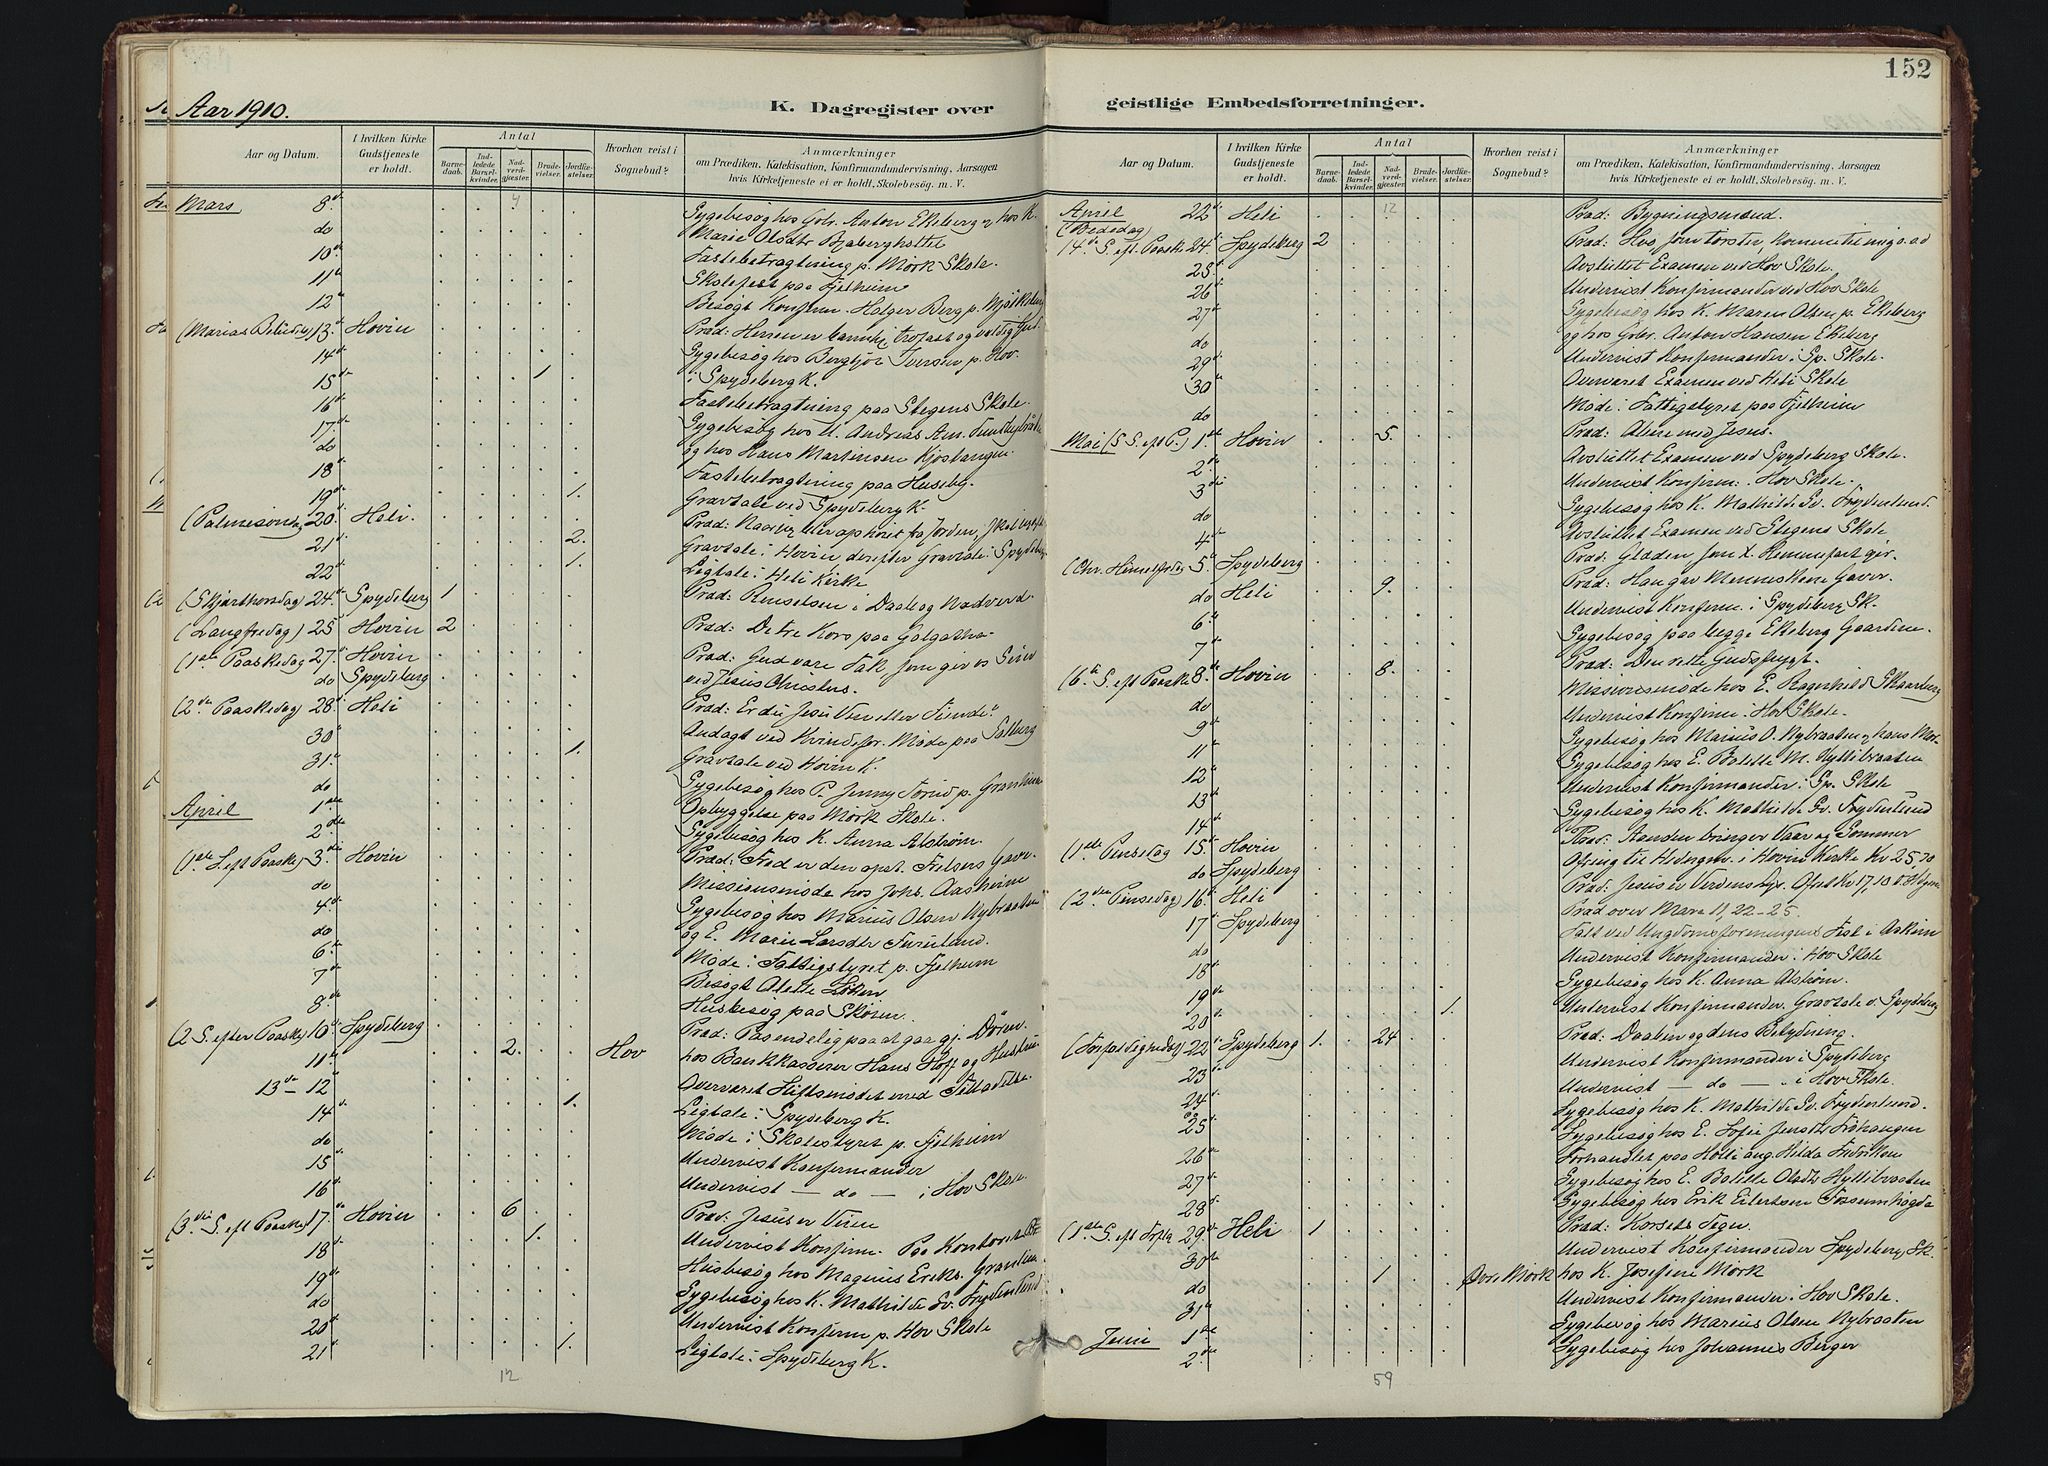 152
Aar 1910.
K. Dagregister over
geistlige Embedsforretninger.
Aar og Datum.
I hvilken Kirke Gudstjeneste er holdt.
Antal
Barnedaab.
Indledede Barselkvinder.
Nadverdgjæster.
Brudevielser.
Jordfæstelser.
Hvorhen reist i Sognebud?
Anmærkninger
om Prædiken, Katekisation, Konfirmandundervisning, Aarsagen
hvis Kirketjeneste ei er holdt, Skolebesøg. m. V.
Mars 8de Sygebesøg hos Gbr. Anton Ekeberg og hos K.
do Marie Olsdtr Bjaberghottet
10de Fastebetragtning p. Mørk Skole.
11te Skolefest paa Fjelheim
12te Besøgt Konfirm. Holger Berg p.
(Marias Bebud.) 13de Hovin Præd: Herren er trofast og
14de Sygebesøg hos Iversen p. Hov.
15de 1 i Spydeberg K.
16de Fastebetragtning paa Stegens Skole.
17de Sygebesøg hos Andreas Am.
do og hos Hans Martensen Kjostangen.
18 Fastebetragtning paa Huseby.
19de 1. Gravtale ved Spydeberg K.
(Palmesondag 20de Heli. Præd: Naar jeg blir ophøiet fra Jorden,
21de 2. Gravtale i Hovin derefter Gravtale i Spydeberg
22de 1. Ligtale i Heli Kirke
(Skjærthorsdag) 24de Spydeberg 1 Præd: Renselsen i Daab og Nadverd.
(Langfredag) 25de Hovin 2 Præd: De tre Kors paa Golgatha.
(1ste Paaskedag 27de Hovin Præd: Gud være Tak som gir os Seier
do Spydeberg ved Jesus Christus.
(2den Paaskedag) 28de Heli Præd: Er du Jesu Ven eller Fiende?
30te Andagt ved Kvindefor. Møde paa Solberg
31te 1. Gravtale ved Hovin K.
do Sygebesøg hos P. Jenny p. Granheim
April 1ste Opbyggelse paa Mørk Skole.
2den Sygebesøg hos K. Anna Alstrøm.
(1ste S. eft Paaske) 3die Hovin Præd: Fred er den opst. Frelsers Gave.
do Missionsmøde hos Johs. Aasheim
4de Sygebesøg hos Marius Olsen Nybraaten
do og E. Marie Larsdtr Furulund.
6te Møde i Fattigstyret p. Fjelheim
7de Besøgt Alette Løken
8de Husbesøg paa Skøien.
(2 S. efter Paaske) 10de Spydeberg Præd: Pas endelig paa at gaa gj. Døren.
11te 2. Hov hos Bankkasserer Hans Hoff og Hustru
13de – 12 Overværet Stiftsmødet med
14de 1. Ligtale i Spydeberg K.
do Møde i Skolestyret p. Fjelheim
15 Undervist Konfirmander
16de Undervist – do – i Hov Skole
(3die S. eft Paaske) 17de Hovin 6 Præd: Jesus er Veien
18de 1. Undervist Konfirm. Paa Kontoret
19de Husbesøg hos Magnus Ereks. Granlien
do Sygebesøg hos K. Mathilde Sv. Frydenlund
20de Undervist Konfirm p. Hov Skole
21de 1. Ligtale i Spydeberg K.
12
Aar og Datum.
I hvilken Kirke Gudstjeneste er holdt.
Antal
Barnedaab.
Indledede Barselkvinder.
Nadverdgjæster.
Brudevielser.
Jordfæstelser.
Hvorhen reist i Sognebud?
Anmærkninger
om Prædiken, Katekisation, Konfirmandundervisning, Aarsagen
hvis Kirketjeneste ei er holdt, Skolebesøg. m. V.
April 22de Heli 12 Præd: Bygningsmænd.
(Bededag)
(4de S. eft. Paaske 24de Spydeberg 2 Præd: Hvo som tørster, komme til mig o.a.d
25de Avsluttet Examen ved Hov Skole.
26de Undervist Konfirmander ved Hov Skole
27de Sygebesøg hos K. Maren Olsen p. Ekeberg
do og hos Gbr. Anton Hansen Ekeberg
29de Undervist Konfirmander i Sp. Skole.
30te Overværet Examen ved Heli Skole
do Møde i Fattigstyret paa Fjelheim
Mai (5 S. eft P.) 1ste Hovin 5. Præd: Alene med Jesus.
2den Avsluttet Examen ved Spydeberg Skole.
3die Undervist Konfirm. i Hov Skole.
do Sygebesøg hos K. Mathilde Sv. Frydenlund.
4de Avsluttet Examen ved Stegens Skole
(Chr. Himmelfrdag 5te Spydeberg Præd: Glæden som X. Himmelfart gir.
do Heli 9. Præd: Han gav Menneskene Gaver.
6te Undervist Konfirm. i Spydeberg Sk.
7de Sygebesøg paa begge Ekeberg Gaardene.
(6te S. eft Paaske 8de Hovin 8. Præd: Den rette Gudsfrygt.
do Missionsmøde hos E. Ragnhild Skaarberg
9de Undervist Konfirm. i Hov Skole.
11te Sygebesøg hos Marius O. Nybraaten, hans Mor
12te Sygebesøg hos E. Bolette M. Hyttibraaten
13de Undervist Konfirmander i Sp. Skole
14de Sygebesøg hos K. Mathilde Sv. Frydenlund
(1ste Pinsedag 15de Hovin Præd: Aanden bringer Vaar og Sommer
do Spydeberg Ofring til Hedningem. i Hovin Kirke Kr 25,70
(2den Pinsedag) 16de Heli Præd: Jesus er Verdens Lys. Ofret Kr 17,10
17de Spydeberg Præd over Mark 11, 22–25.
do Talt ved Ungdomsforeningens Fest i Askim
18de Undervist Konfirmander i Hov Skole
19de Sygebesøg hos K. Anna Alstrøm.
20de 1. Undervist Konfirmander, Gravtale v. Spydeberg
22de Spydeberg 1. 24 Præd: Daaben og dens Betydning.
23de Undervist Konfirmander i Spydeberg
24de Undervist – do – i Hov Skole.
25de Sygebesøg hos K. Mathilde Sv. Frydenlund.
Sygebesøg hos E. Sofie Jensdtr
26de Forhandlet paa Holli ang. Hilda Fredriksen
27de Sygebesøg hos E. Bolette Olsdtr Hyttibraaten
28de Sygebesøg hos Erik Eilertsen Fossumhøgda
(1ste S. eft Trefta 29de Heli 1 Præd: Korsets Tegn.
30te Undervist Konfirmander Spydeberg Sk.
do 1 Øvre Mørk hos K. Josefine Mørk
31te Undervist Konfirmander i Hov Skole.
Juni 1ste Sygebesøg hos Marius Olsen Nybraaten
2den Sygebesøg hos Johannes Berger
59